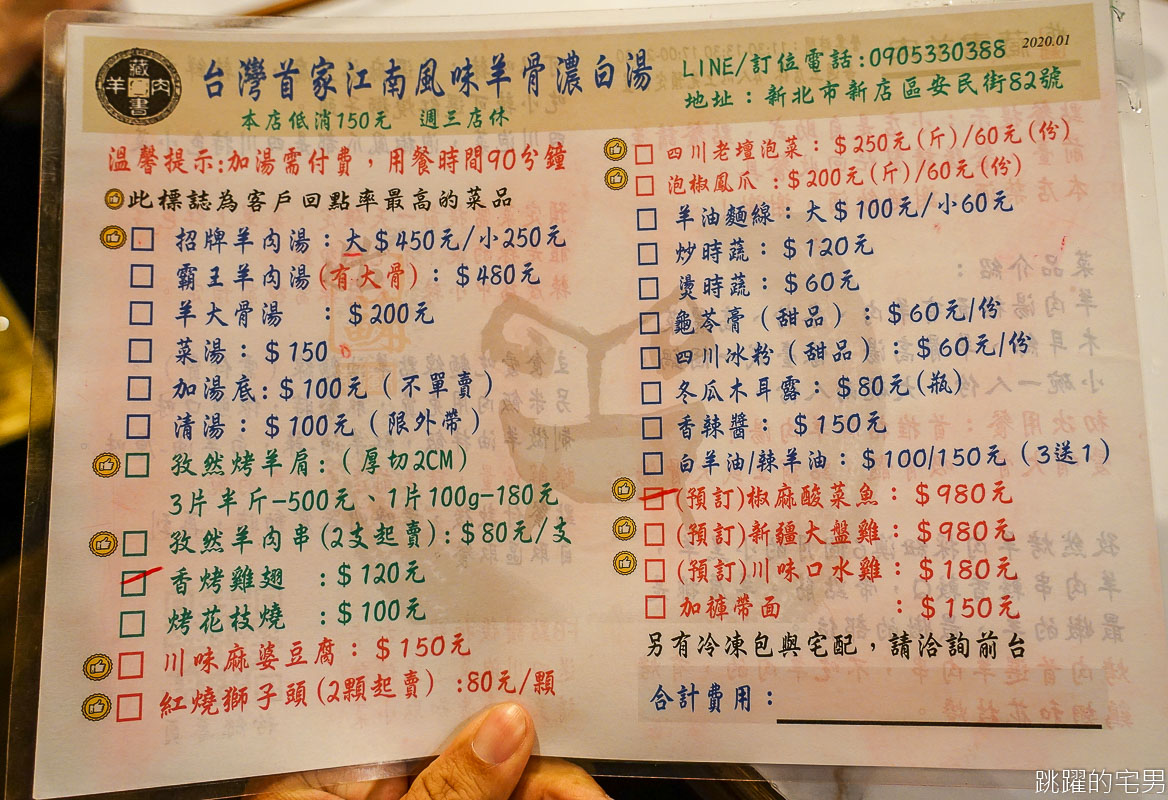 藏書羊肉
台灣首家江南風味羊骨濃白湯
本店低消150元 週三店休
LINE/訂位電話:0905330388
2020.01
地址：新北市新店區安民街82號
溫馨提示:加湯需付費，用餐時間90分鐘
此標誌為客戶回點率最高的菜品
招牌羊肉湯：大$450元/小250元
霸王羊肉湯(有大骨)：$480元
羊大骨湯 ：$200元
菜湯：$150
加湯底:$100元（不單賣）
清湯：$100元（限外帶）
孜然烤羊肩:（厚切2CM）
3片半斤-500元、1片100g-180元
孜然羊肉串(2支起賣):$80元/支
香烤雞翅 :$120元
烤花枝燒 :$100元
川味麻婆豆腐：$150元
紅燒獅子頭(2顆起賣) :80元/顆
四川老壇泡菜：$250元(斤)/60元(份)
泡椒鳳爪：$200元(斤)/60元(份)
羊油麵線：大$100元/小60元
炒時蔬：$120元
燙時蔬：$60元
龜苓膏（甜品）：$60元/份
四川冰粉（甜品）：$60元/份
冬瓜木耳露：$80元(瓶)
香辣醬： $150元
白羊油/辣羊油：$100/150元（3送1）
(預訂)椒麻酸菜魚：$980元
(預訂)新疆大盤雞：$980元
(預訂)川味口水雞：$180元
加褲帶面 ：$150元
另有冷凍包與宅配，請洽詢前台
合計費用：
跳躍的宅男